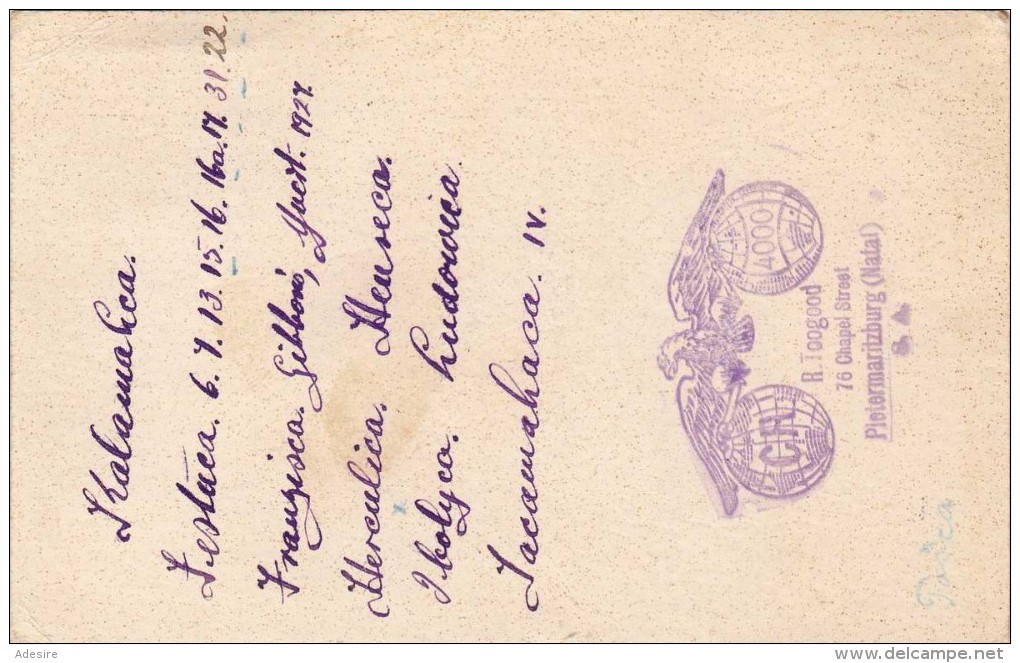 Skalamahca.
Festuca. 6. 7. 13. 15. 16. 16a. 17. 31. 22.
Franzisca. Gibboni, 1927.
Herculica. Heuseca.
Ibolyca. Ludowica.
Sacamahaca. IV.
4000
CR
R. Toogood
76 Chapel Street
Pietermaritzburg (Natal)
Adesire
www.delcampe.net